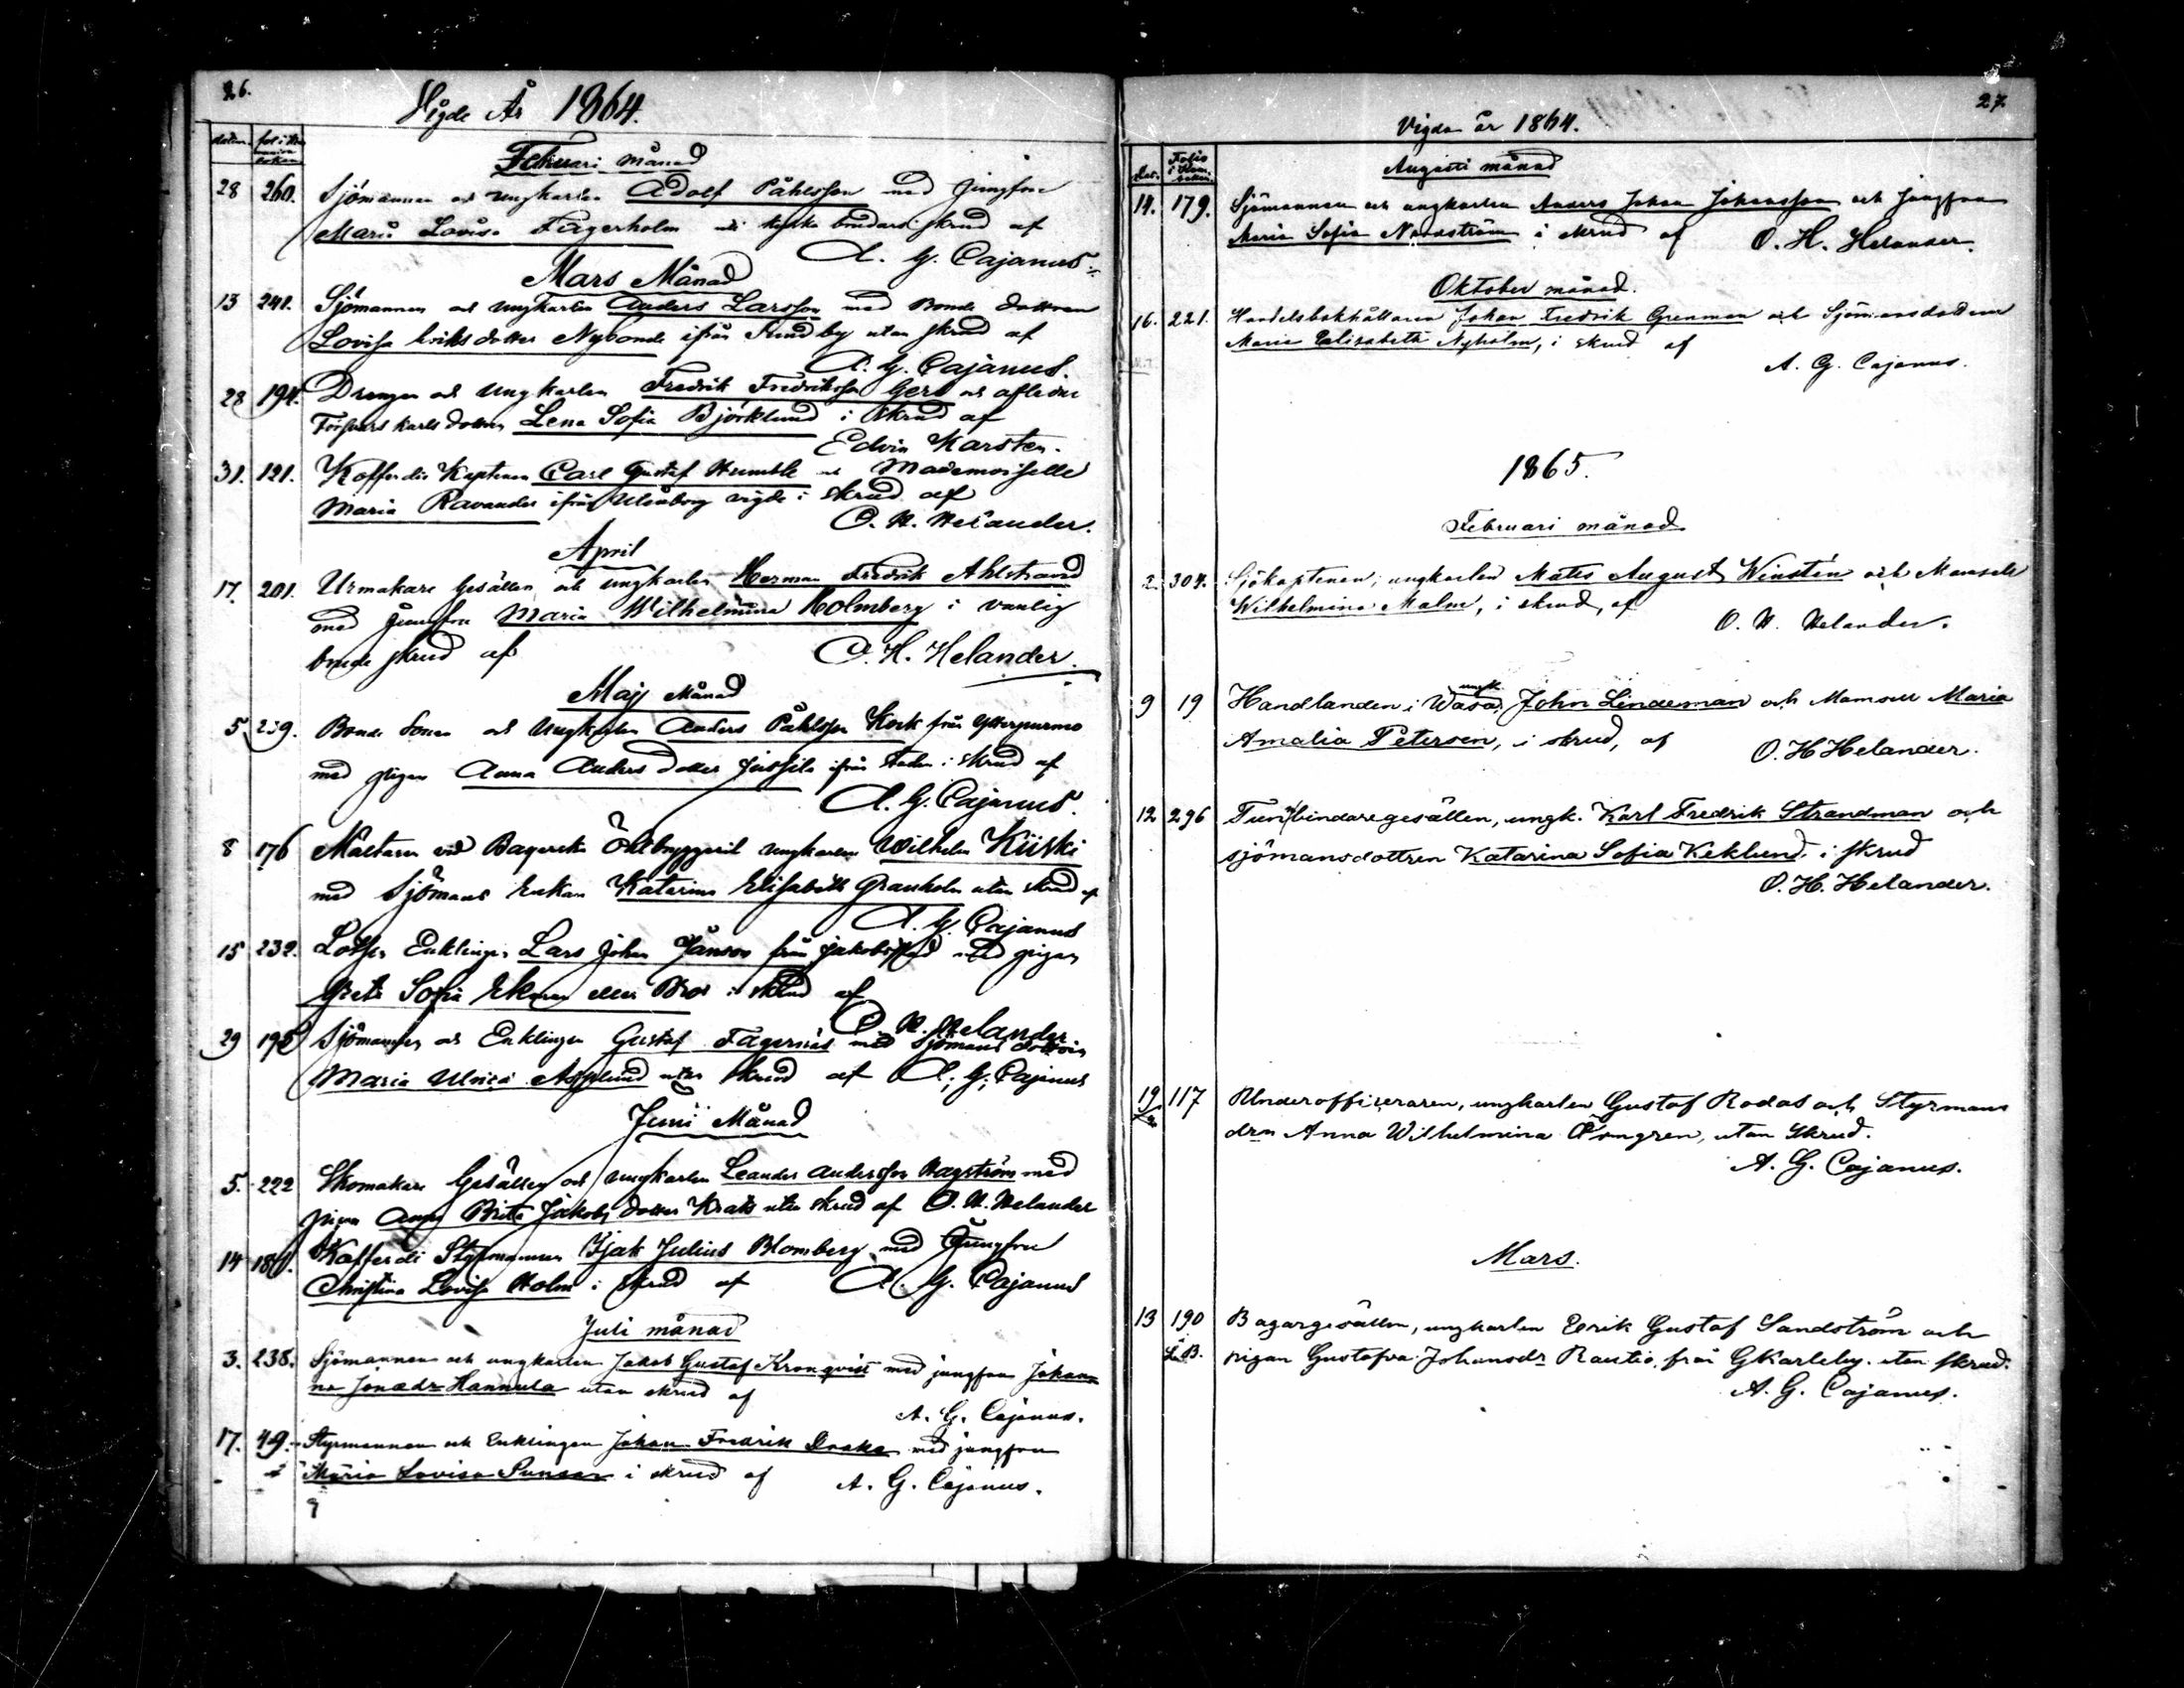 26.
Vigde År 1864.
datum. fol: i Kommunion boken
Februari månad
28 260. Sjömannen och ungkarlen Adolf Påhlsson med Jungfru
Maria Lovisa Fagerholm brudars skrud af
A. G. Cajanus
Mars Månad
13 241. Sjömannen och ungkarlen Anders Larsson med Bonde dottren
Lovisa Eriksdotter Nybonde ifrån Sundby utan skrud af
A. G. Cajanus.
28 194. Drengen och ungkarlen Fredrik Fredriksson Gers och aflidne
Försvars karls dottren Lena Sofia Björklund i skrud af
Edvin Karsten.
31. 121. Kofferdie Kaptenen Carl Gustaf Humble och Mademoiselle
Maria Ravander ifrån Uleåborg vigde i skrud af
O. H. Helander.
April
17. 201. Urmakare Gesällen och ungkarlen Herman Fredrik Ahlstrand
med Jungfru Maria Wilhelmina Holmberg i vanlig
brude skrud af O. H. Helander.
Maij Månad
5. 259. Bonde Sonen och Ungkarlen Anders Påhlsson Kock från Ytterpurmo
med pigan Anna Anders dotter Jussila ifrån staden i skrud af
A. G. Cajanus.
8 176 Mältaren vid Bayerska Ölbryggeriet ungkarlen Wilhelm Kiiski
med Sjömans Enkan Katarina Elisabeth Granholm utan skrud af
A. G. Cajanus
15 232. Lotsen Enklingen Lars Johan Jänson från Jakobstad med pigan
Greta Sofia Ekman eller Bro i skrud af
O. H. Helander
29 195 Sjömannen och Enklingen Gustaf Fagernäs med Sjömans dottren
Maria Ulrica Asplund utan skrud af A. G. Cajanus
Junii Månad
5. 222 Skomakare Gesällen och ungkarlen Leander Andersson Hagström med
pigan Anna Brita Jakobs dotter Krats utan skrud af O. H. Helander
14 181. Kofferdi Styrmannen Isak Julius Blomberg med Jungfru
Christina Lovisa Holm i skrud af A. G. Cajanus
Juli månad
3. 238. Sjömannen och ungkarlen Jakob Gustaf Kronqvist med jungfrun Johan-
na Jonædr Hannula utan skrud af
A. G. Cajanus.
17. 49. Styrmannen och Enklingen Johan Fredrik Drake med jungfrun
Maria Lovisa Sunsar i skrud af A. G. Cajanus.
27
Vigda år 1864.
Dat. Folio i Kom. boken.
Augusti månad
14. 179. Sjömannen och ungkarlen Anders Johan Johansson och Jungfrun
Maria Sofia Nordström i skrud af O. H. Helander.
Oktober månad.
16. 221. Handelsbokhållaren Johan Fredrik Grenman och Sjömansdottren
Maria Elisabeth Nyholm, i skrud af
A. G. Cajanus.
1865.
Februari månad
2 304. Sjökaptenen, ungkarlen Mats August Winstén och Mamsell
Wilhelmina Malm, i skrud, af
O. H. Helander.
9 19 Handlanden i Wasa, ungk. John Lindeman och Mamsell Maria
Amalia Petersen, i skrud, af O. H Helander.
12 296 Tunnbindaregesällen, ungk. Karl Fredrik Strandman och
sjömansdottren Katarina Sofia Keklund, i skrud
O. H. Helander.
19 117 Underofficeraren, ungkarlen Gustaf Rodas och Styrmans
drn Anna Wilhelmina Omgren, utan skrud.
A. G. Cajanus.
Mars.
13 190 Bagargesällen, ungkarlen Erik Gustaf Sandström och
L.B. pigan Gustafva Johansdr Rautio från GKarleby. utan skrud.
A. G. Cajanus.